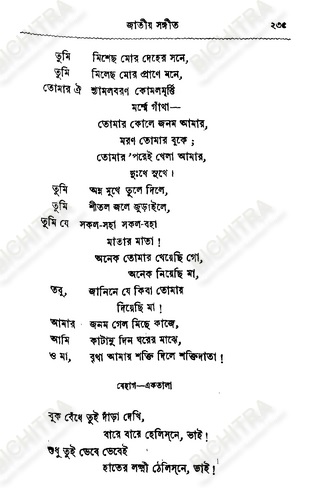 জাতীয় সঙ্গীত ২৩৫
তুমি মিশেছ মোর দেহের সনে,
তুমি মিলেছ মোর প্রাণে মনে,
তোমার ঐ শ্যামলবরণ কোমলমূর্ত্তি
মর্ম্মে গাঁথা—
তোমার কোলে জনম আমার,
মরণ তোমার বুকে;
তোমার 'পরেই খেলা আমার,
দুঃখে সুখে।
তুমি অন্ন মুখে তুলে দিলে,
তুমি শীতল জলে জুড়াইলে,
তুমি যে সকল-সহা সকল-বহা
মাতার মাতা!
অনেক তোমার খেয়েছি গো,
অনেক নিয়েছি মা,
তবু, জানিনে যে কিবা তোমার
দিয়েছি মা!
আমার জনম গেল মিছে কাজে,
আমি কাটানু দিন ঘরের মাঝে,
ও মা, বৃথা আমার শক্তি দিলে শক্তিদাতা!
বেহাগ—একতালা
বুক বেঁধে তুই দাঁড়া দেখি,
বারে বারে হেলিস্‌নে, ভাই!
শুধু তুই ভেবে ভেবেই
হাতের লক্ষ্মী ঠেলিস্‌নে, ভাই!
BICHITRA
BICHITRA
BICHITRA
BICHITRA